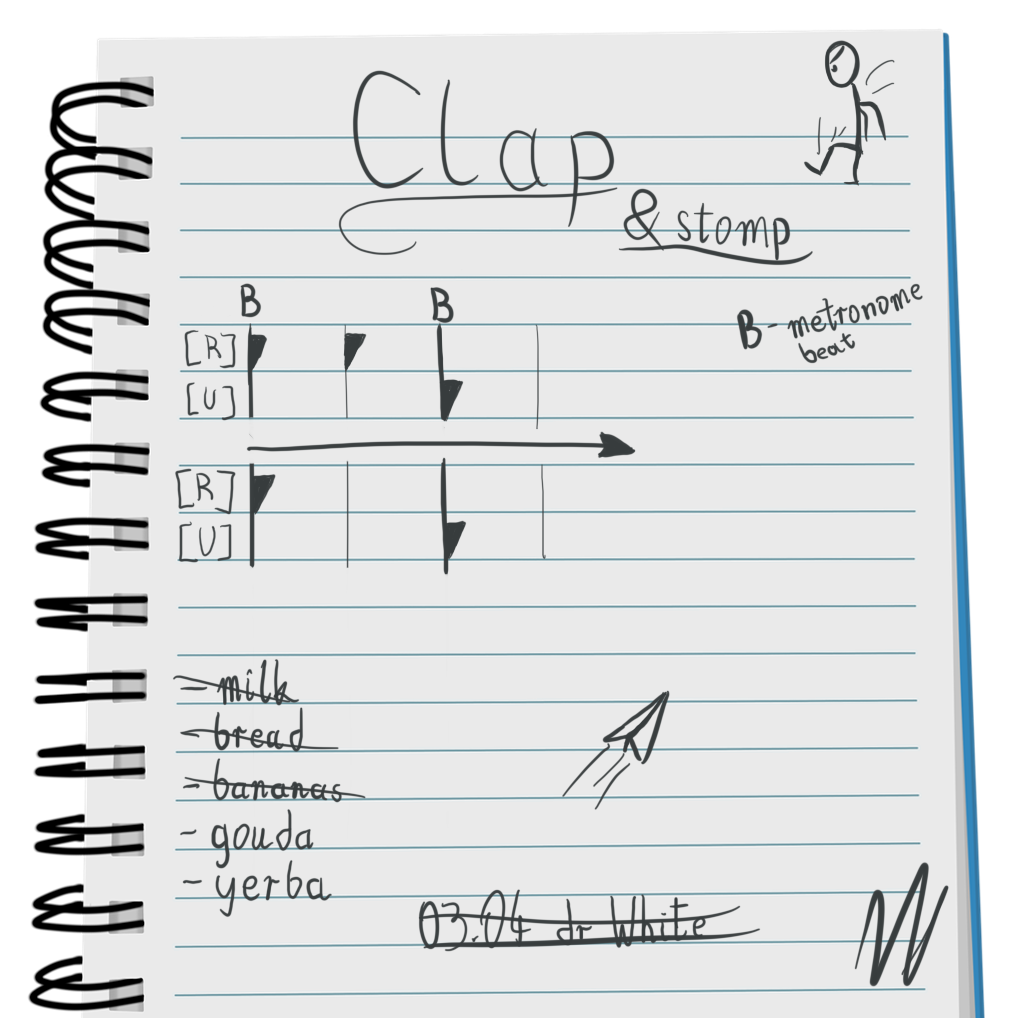 Clap
& stomp
B B
B - metronome
beat
[R]
[U]
[R]
[U]
- milk
- bread
- bananas
- gouda
- yerba
03.04 dr White